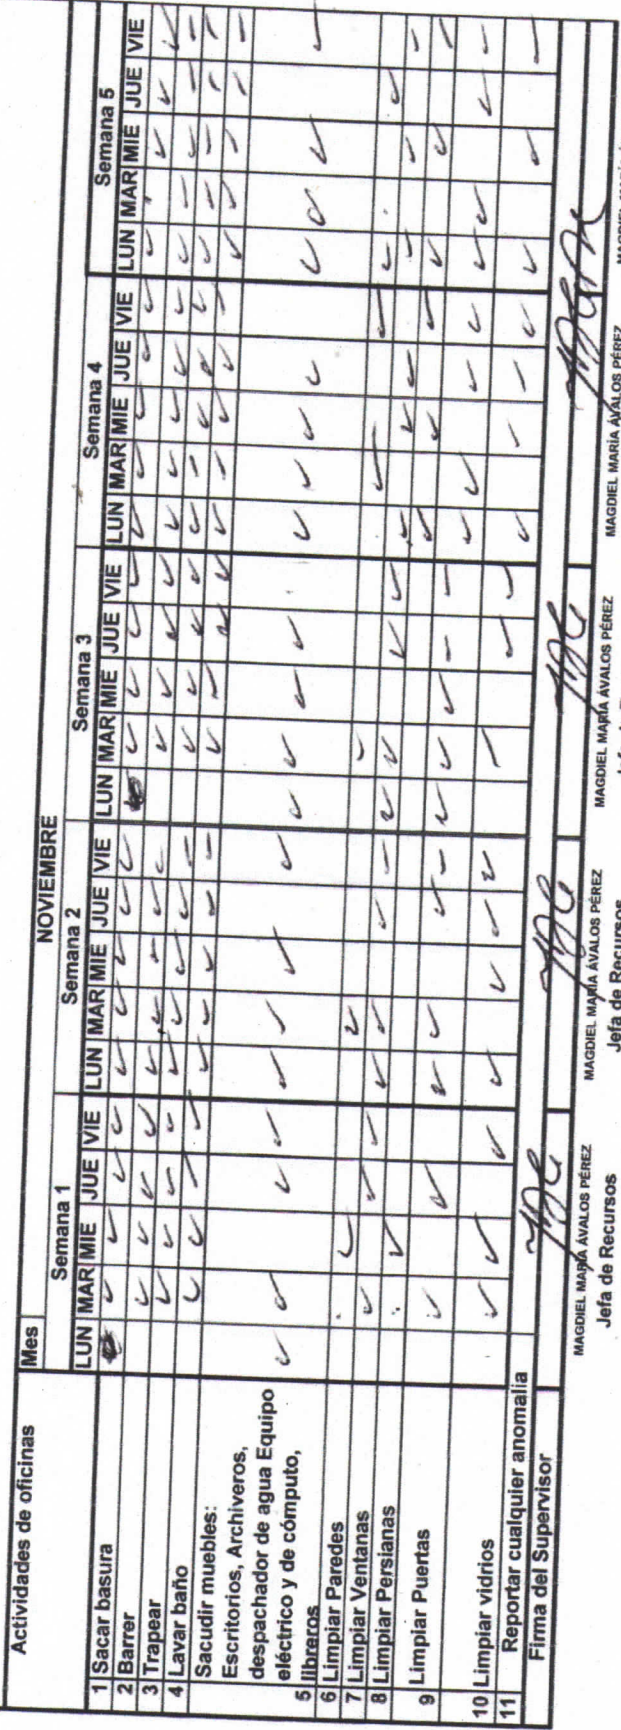 Actividades de oficinas
Mes NOVIEMBRE
Semana 1 Semana 2 Semana 3 Semana 4 Semana 5
LUN MAR MIE JUE VIE LUN MAR MIE JUE VIE LUN MAR MIE JUE VIE LUN MAR MIE JUE VIE LUN MAR MIE JUE VIE
1 Sacar basura
2 Barrer
3 Trapear
4 Lavar baño
Sacudir muebles:
Escritorios, Archiveros,
despachador de agua Equipo
eléctrico y de cómputo,
5 libreros
6 Limpiar Paredes
7 Limpiar Ventanas
8 Limpiar Persianas
9 Limpiar Puertas
10 Limpiar vidrios
11 Reportar cualquier anomalia
Firma del Supervisor
MAGDIEL MARÍA ÁVALOS PÉREZ
Jefa de Recursos
MAGDIEL MARÍA ÁVALOS PÉREZ
Jefa de Recursos
MAGDIEL MARÍA ÁVALOS PÉREZ
MAGDIEL MARÍA ÁVALOS PÉREZ